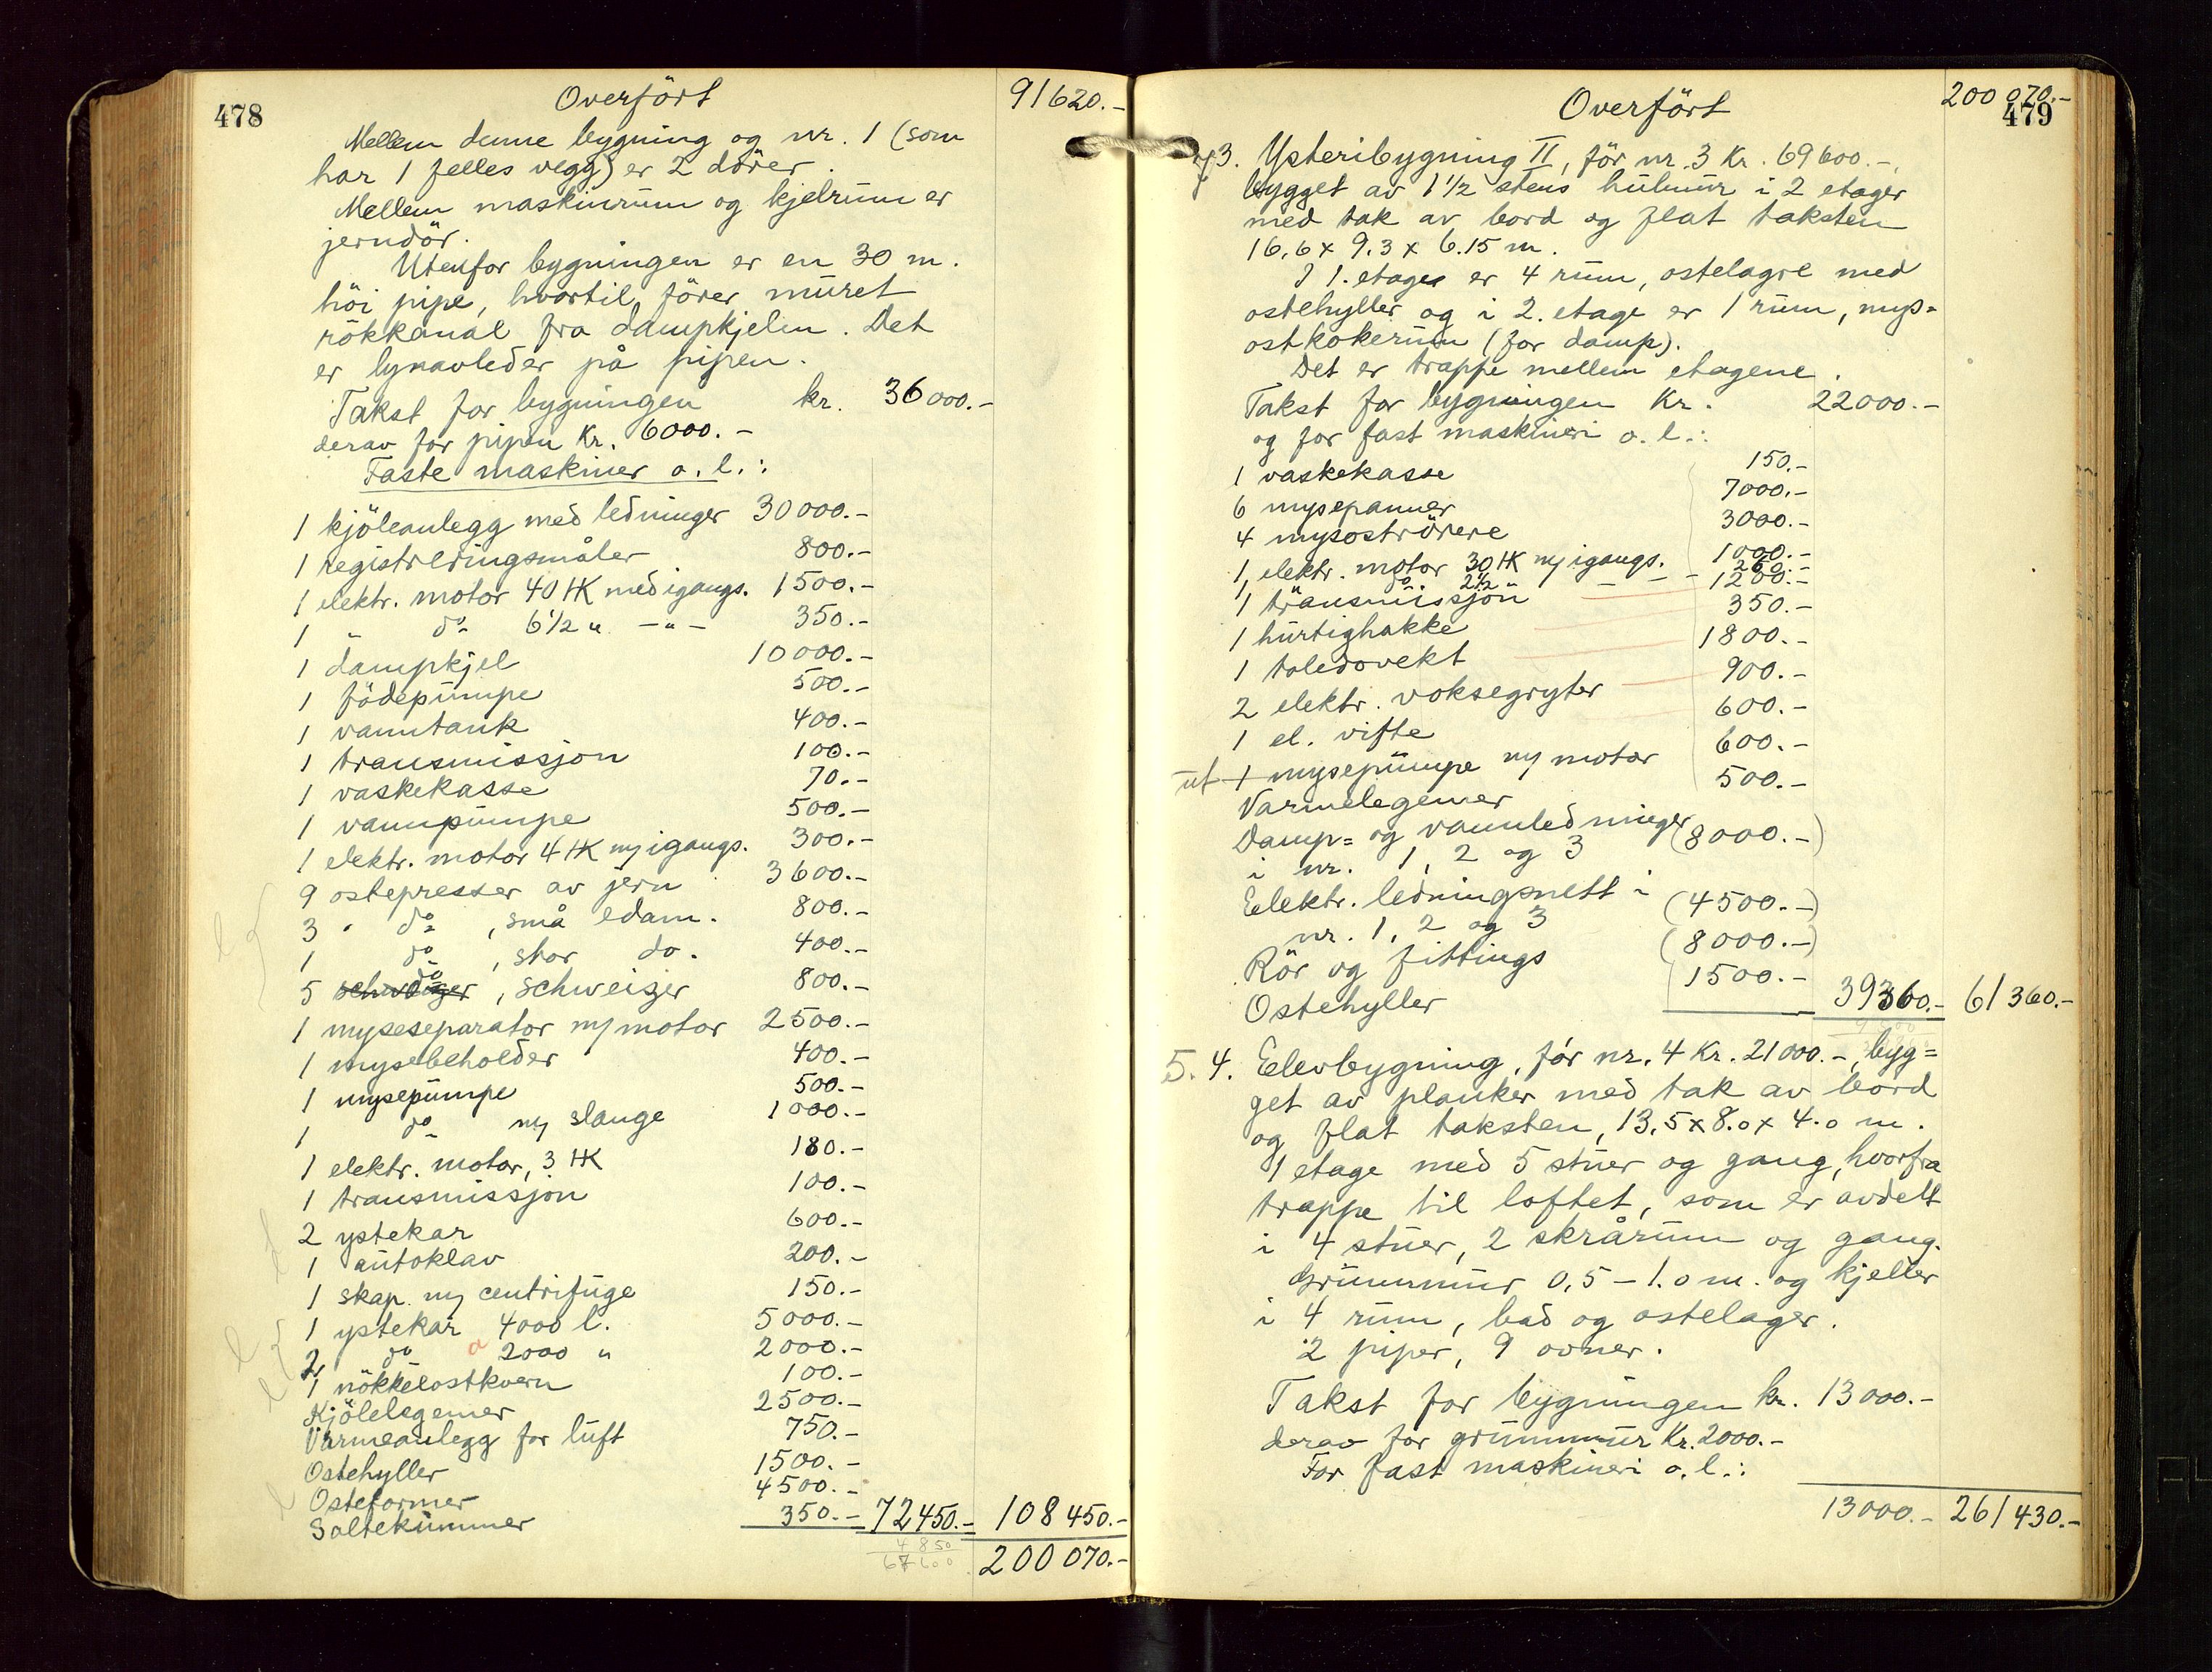 478
Overfört 91620.-
Mellem denne bygning og nr. 1 (som
har 1 felles vegg) er 2 dörer.
Mellem maskinrum og kjelrum er
jerndör.
Utenfor bygningen er en 30 m.
höi pipe, hvortil förer muret
rökkanal fra dampkjelen. Det
er lynavleder på pipen.
Takst for bygningen kr. 36000.-
derav for pipen Kr. 6000.-
Faste maskiner o.l.:
1 kjöleanlegg med ledninger 30000.-
1 registreringsmåler 800.-
1 elektr. motor 40 HK med igangs. 1500.-
1 " do 6 1/2 " -"- 350.-
1 dampkjel 10000.-
1 födepumpe 500.-
1 vanntank 400.-
1 transmissjon 100.-
1 vaskekasse 70.-
1 vannpumpe 500.-
1 elektr. motor 4 HK m/igangs. 300.-
9 ostepresser av jern 3600.-
3 " do , små edam. 800.-
1 do , stor do. 400.-
5 schweizer do , schweizer 800.-
1 myseseparator m/motor 2500.-
1 mysebeholder 400.-
1 mysepumpe 500.-
1 do m/ slange 1000.-
1 elektr. motor, 3 HK 180.-
1 transmissjon 100.-
2 ystekar 600.-
1 autoklav 200.-
1 skap m/ centrifuge 150.-
1 ystekar 4000 l. 5000.-
2 do a 2000 " 2000.-
1 nökkelostkvern 100.-
Kjölelegemer 2500.-
Varmeanlegg for luft 750.-
Ostehyller 1500.-
Osteformer 4500.-
Saltekummer 350.- 72450.- 108450.-
4850
67600
200070.-
479
Overfört 200070.-
3. Ysteribygning II, för nr. 3 Kr. 69600.-,
bygget av 1 1/2 stens hulmur i 2 etager
med tak av bord og flat taksten
16,6 x 9.3 x 6.15 m.
I 1. etage er 4 rum, ostelagre med
ostehyller og i 2. etage er 1 rum, mys=
ostkokerum (for damp).
Det er trappe mellem etagene.
Takst for bygningen Kr. 22000.-
og for fast maskineri o.l.:
1 vaskekasse 150.-
6 mysepanner 7000.-
4 mysoströrere 3000.-
1 elektr. motor 30 HK m/igangs. 1000.-
1 do 2 1/2 - - - 260.-
1 transmissjon 1200.-
1 hurtighakke 350.-
1 toledovekt 1800.-
2 elektr. voksegryter 900.-
1 el. vifte 600.-
ut 1 mysepumpe m/motor 600.-
Varmelegemer 500.-
Damp= og vannledninger
i nr. 1, 2 og 3 (8000.-)
Elektr. ledningsnett i
nr. 1, 2 og 3 (4500.-)
Rör og fittings (8000.-)
Ostehyller 1500.- 39360.- 61360.-
5. 4. Elevbygning, för nr. 4 Kr. 21000.-, byg=
get av planker med tak av bord
og flat taksten, 13,5 x 8.0 x 4.0 m.
1 etage med 5 stuer og gang, hvorfra
trappe til loftet, som er avdelt
i 4 stuer, 2 skrårum og gang.
Grunnmur 0,5 - 1.0 m. og kjeller
i 4 rum, bad og ostelager.
2 piper, 9 ovner.
Takst for bygningen kr. 13000.-
derav for grunnmur Kr. 2000.-
For fast maskineri o.l.:
13000.- 261430.-